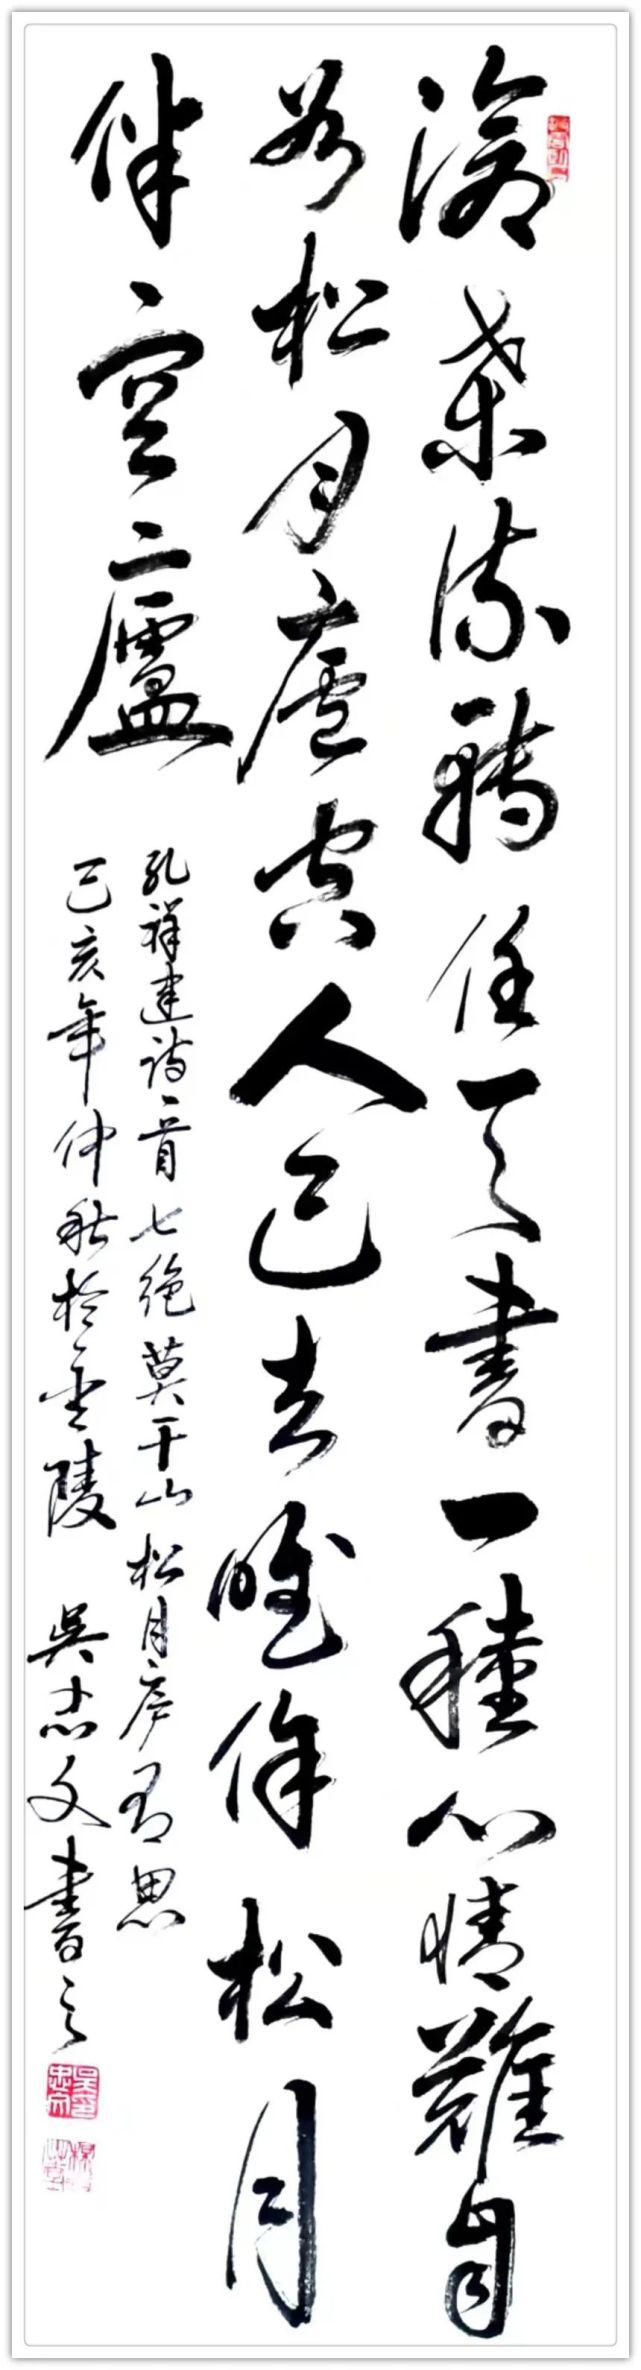 滄桑流轉任天書一種心情難自
如松月廬空人已去唯餘松月
伴空廬
孔祥建詩一首七絕莫干山松月廬有思
己亥年仲秋於金陵 吳忠文書之